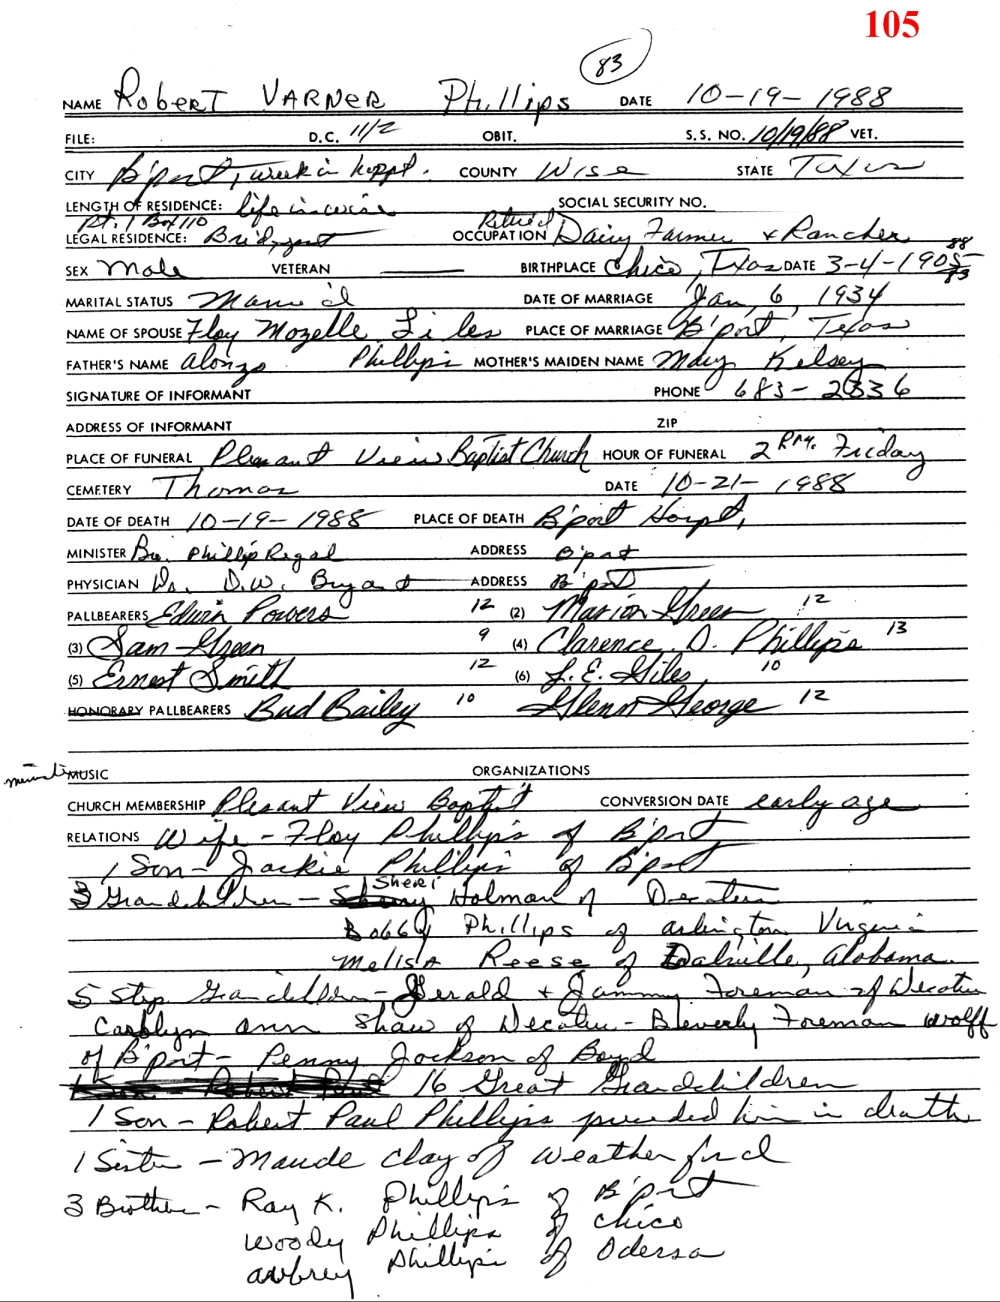 105
83
NAME Robert VARNER Phillips DATE 10-19-1988
FILE: D.C. 11/2 OBIT. S.S. NO. 10/19/88 VET.
CITY B'port, week in hospt. COUNTY Wise STATE Texas
LENGTH OF RESIDENCE: life in wise SOCIAL SECURITY NO.
Rt. 1 Box 110 Retired
LEGAL RESIDENCE: Bridgeport OCCUPATION Dairy Farmer & Rancher
88
SEX Male VETERAN BIRTHPLACE Chico, Texas DATE 3-4-1905
83
MARITAL STATUS Married DATE OF MARRIAGE Jan, 6, 1934
NAME OF SPOUSE Floy Mozelle Liles PLACE OF MARRIAGE B'port, Texas
FATHER'S NAME Alonzo Phillips MOTHER'S MAIDEN NAME Mary Kelsey
SIGNATURE OF INFORMANT PHONE 683-2336
ADDRESS OF INFORMANT ZIP
PLACE OF FUNERAL Pleasant View Baptist Church HOUR OF FUNERAL 2 P.M. Friday
CEMETERY Thomas DATE 10-21-1988
DATE OF DEATH 10-19-1988 PLACE OF DEATH B'port Hospt,
MINISTER Bro. Phillip Regal ADDRESS B'port
PHYSICIAN Dr. D.W. Bryant ADDRESS B'port
PALLBEARERS Edwin Powers 12 (2) Marion Green 12
(3) Sam Green 9 (4) Clarence D. Phillips 13
(5) Ernest Smith 12 (6) L.E. Giles 10
HONORARY PALLBEARERS Bud Bailey 10 Glenn George 12
MUSIC ORGANIZATIONS
CHURCH MEMBERSHIP Plesant View Baptist CONVERSION DATE early age
RELATIONS Wife - Floy Phillips of B'port
1 Son - Jackie Phillips of B'port
3 Grandchildren - Sheri Holman of Decatur
Bobby Phillips of Arlington Virginia
Melisa Reese of Dalville, Alabama
5 Step Grandchildren - Jerald & Jammy Foreman of Decatur
Carolyn Ann Shaw of Decatur - Beverly Foreman Wolff
of B'port - Penny Jackson of Boyd
16 Great Grandchildren
1 Son - Robert Paul Phillips preceded him in death
1 Sister - Maude Clay of Weatherford
3 Brothers - Ray K. Phillips of B'port
Woody Phillips of Chico
Aubrey Phillips of Odessa